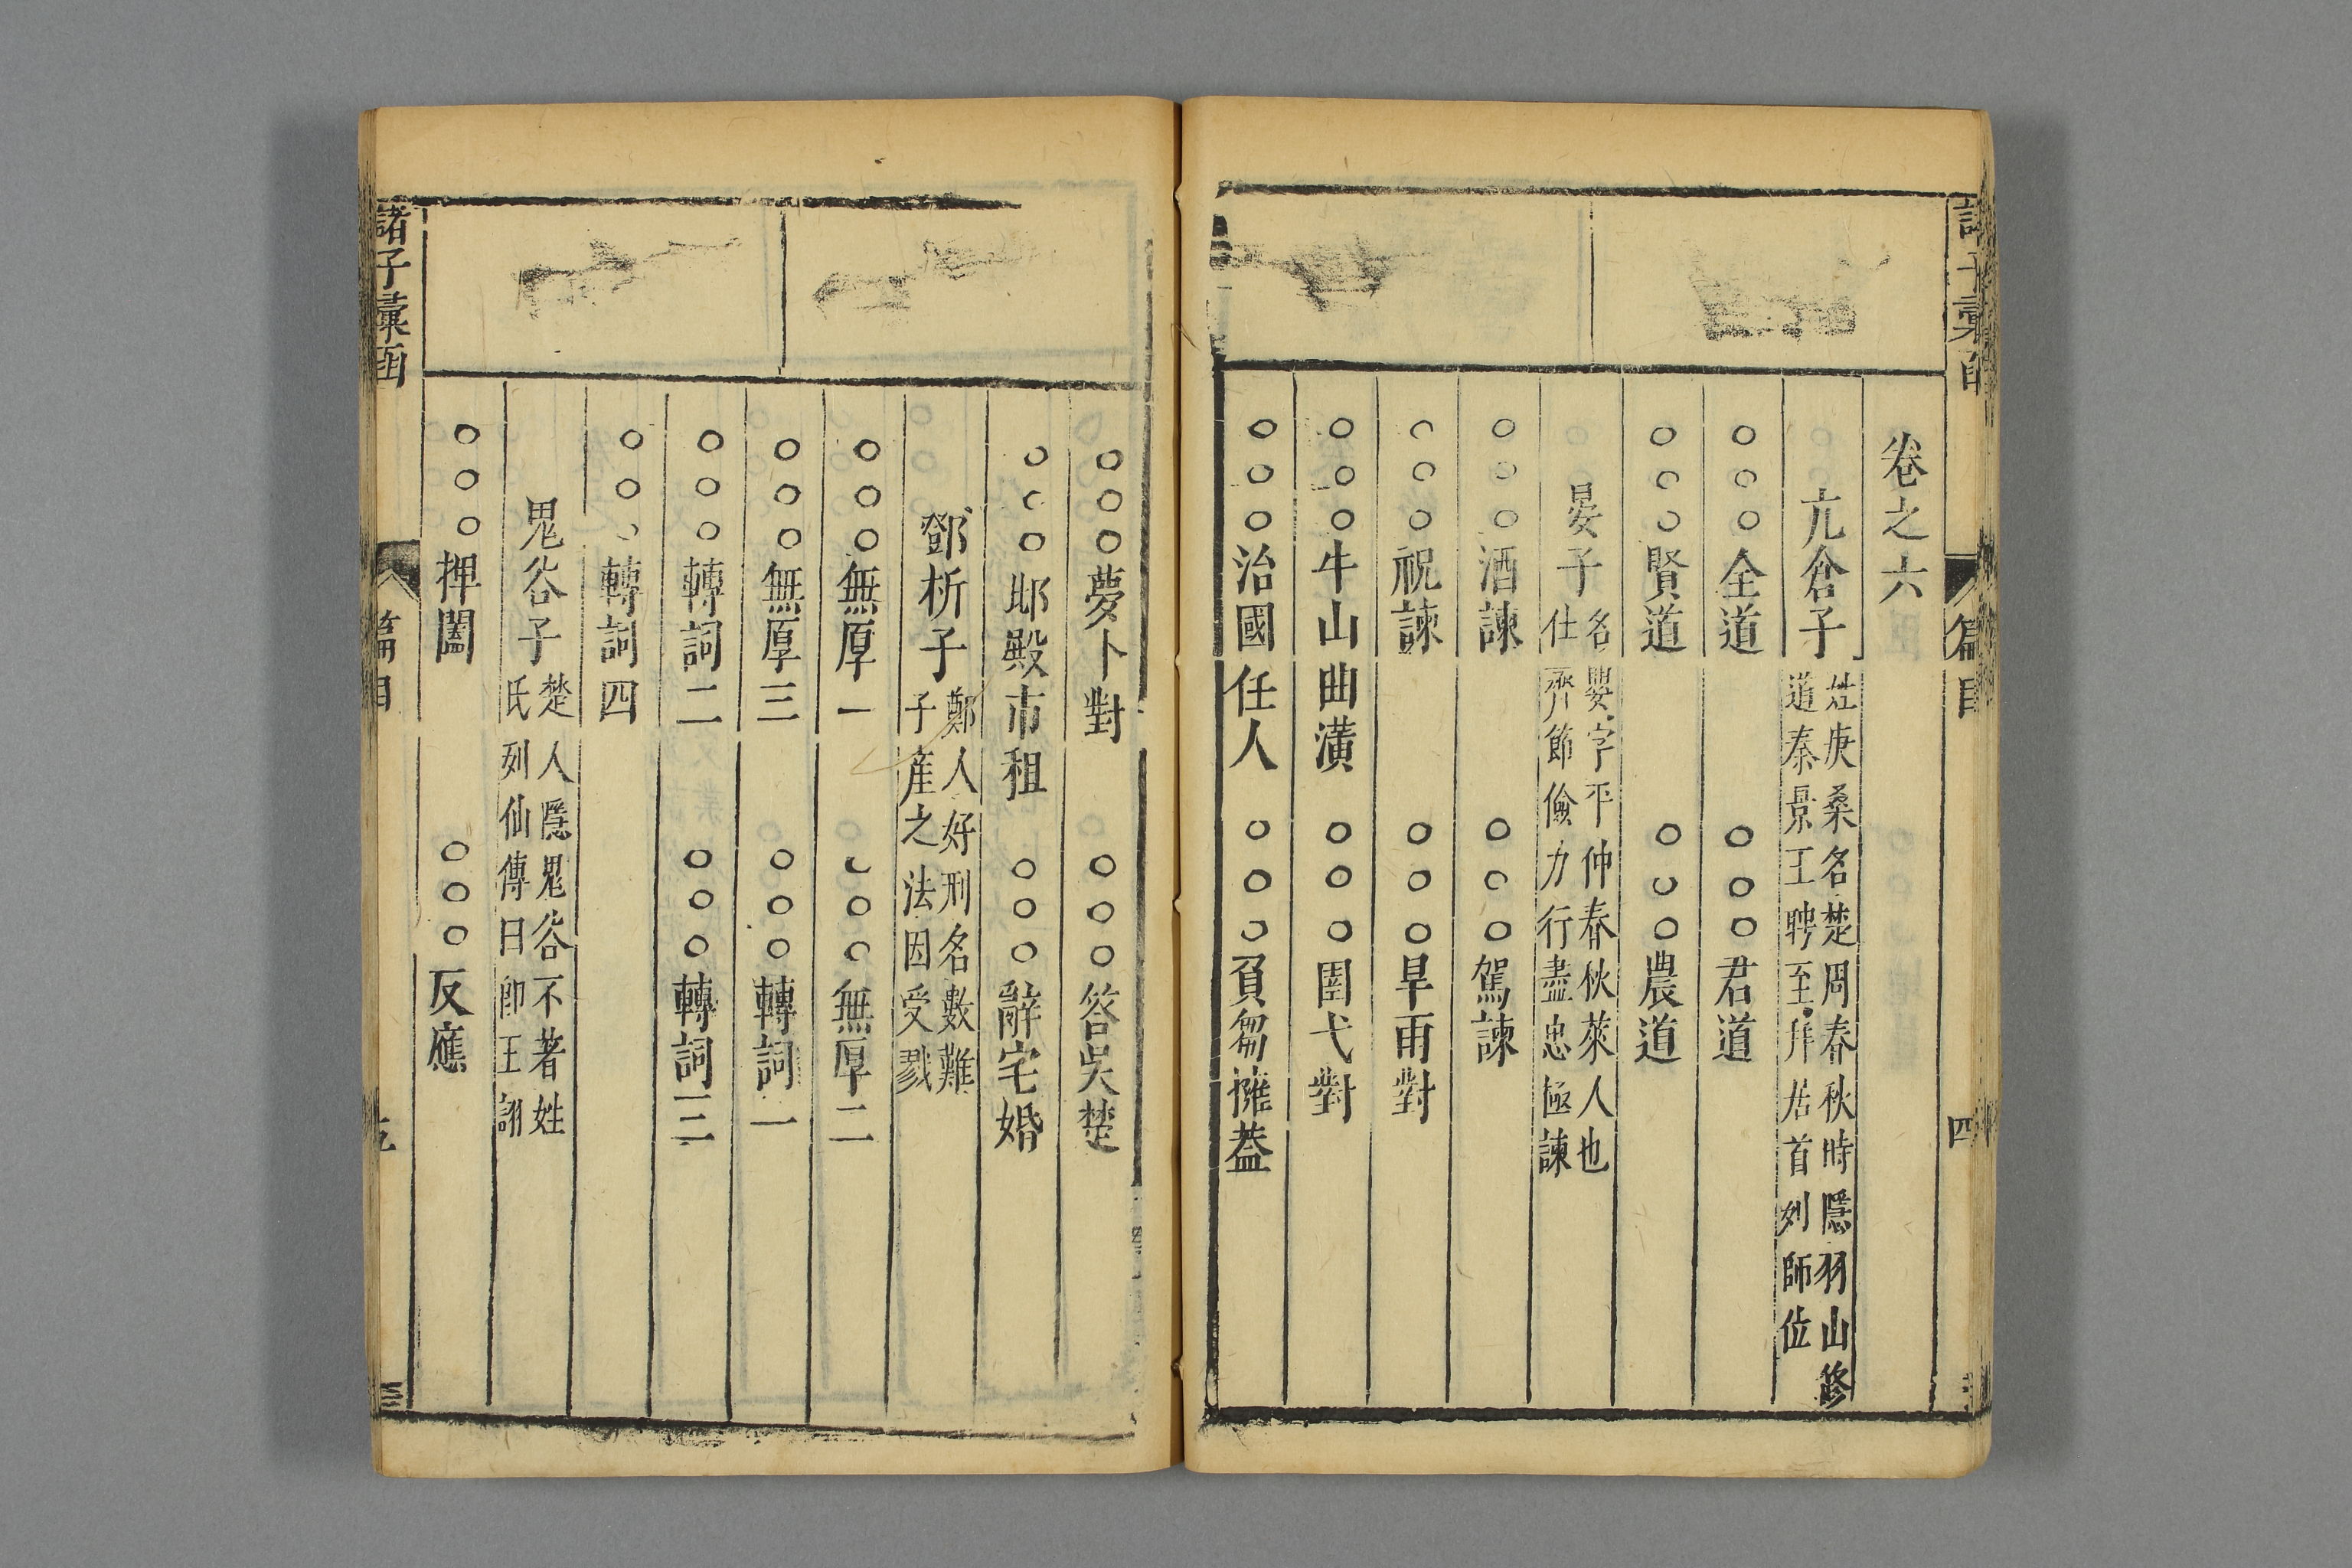 諸子彙函
篇目
四
卷之六
亢倉子 姓庚桑名楚周春秋時隱羽山修
道秦景王聘至拜居首列師位
○○○全道 ○○○君道
○○○賢道 ○○○農道
晏子 名嬰字平仲春秋萊人也
仕齊節儉力行盡忠極諫
○○○酒諫 ○○○駕諫
○○○祝諫 ○○○旱雨對
○○○牛山曲潢 ○○○圉弋對
○○○治國任人 ○○○負芻擁葢
○○○夢卜對 ○○○答吳楚
○○○邶殿市租 ○○○辭宅婚
鄧析子 鄭人好刑名數難
子産之法因受戮
○○○無厚一 ○○○無厚二
○○○無厚三 ○○○轉詞一
○○○轉詞二 ○○○轉詞三
○○○轉詞四
鬼谷子 楚人隱鬼谷不著姓
氏列仙傳曰卽王詡
○○○捭闔 ○○○反應
諸子彙函
篇目